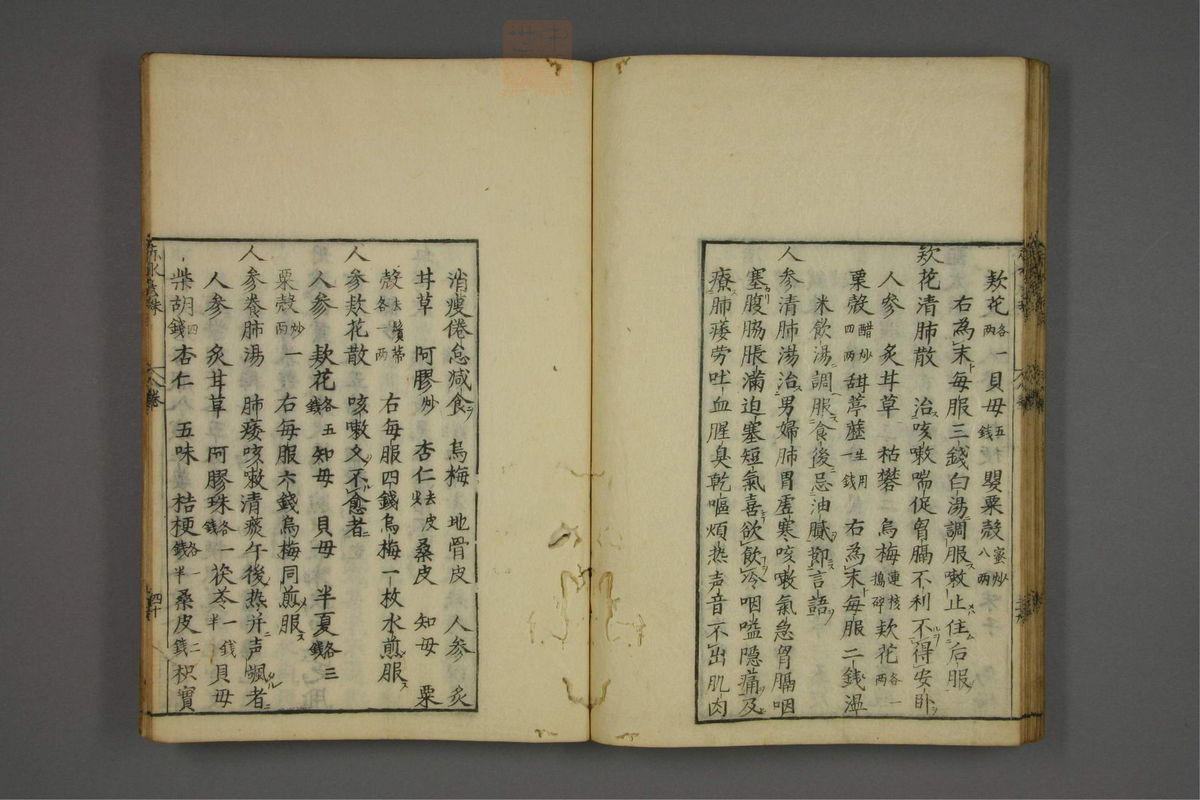 欵花各一両 貝母五錢 罌粟殻蜜炒八両
右為末毎服三錢白湯調服嗽止住后服
欵花清肺散 治咳嗽喘促胷膈不利不得安卧
人参 炙甘草 枯礬 烏梅連核搗碎 欵花各一両
粟殻醋炒四両 甜葶藶生用一錢 右為末毎服二銭温
米飲湯調服食後忌油膩節言語
人参清肺湯治男婦肺胃虚寒咳嗽氣急胷膈咽
塞腹脇脹滿迫塞短氣喜欲飲冷咽嗌隠痛及
療肺痿労吐血腥臭乾嘔煩热声音不出肌肉
消瘦倦怠减食 烏梅 地骨皮 人参 炙
甘草 阿膠炒 杏仁去皮尖 桑皮 知母 粟
殻去鬚蒂各一両 右毎服四錢烏梅一枚水煎服
人参欵花散 咳嗽久不愈者
人参 欵花各五錢 知母 貝母 半夏各三錢
粟殻炒一両 右毎服六錢烏梅同煎服
人参養肺湯 肺痿咳嗽清痰午後热并声颯者
人参 炙甘草 阿膠珠各一錢 茯苓一錢半 貝母
柴胡四錢 杏仁 五味 桔梗各一錢半 桑皮二錢 枳實